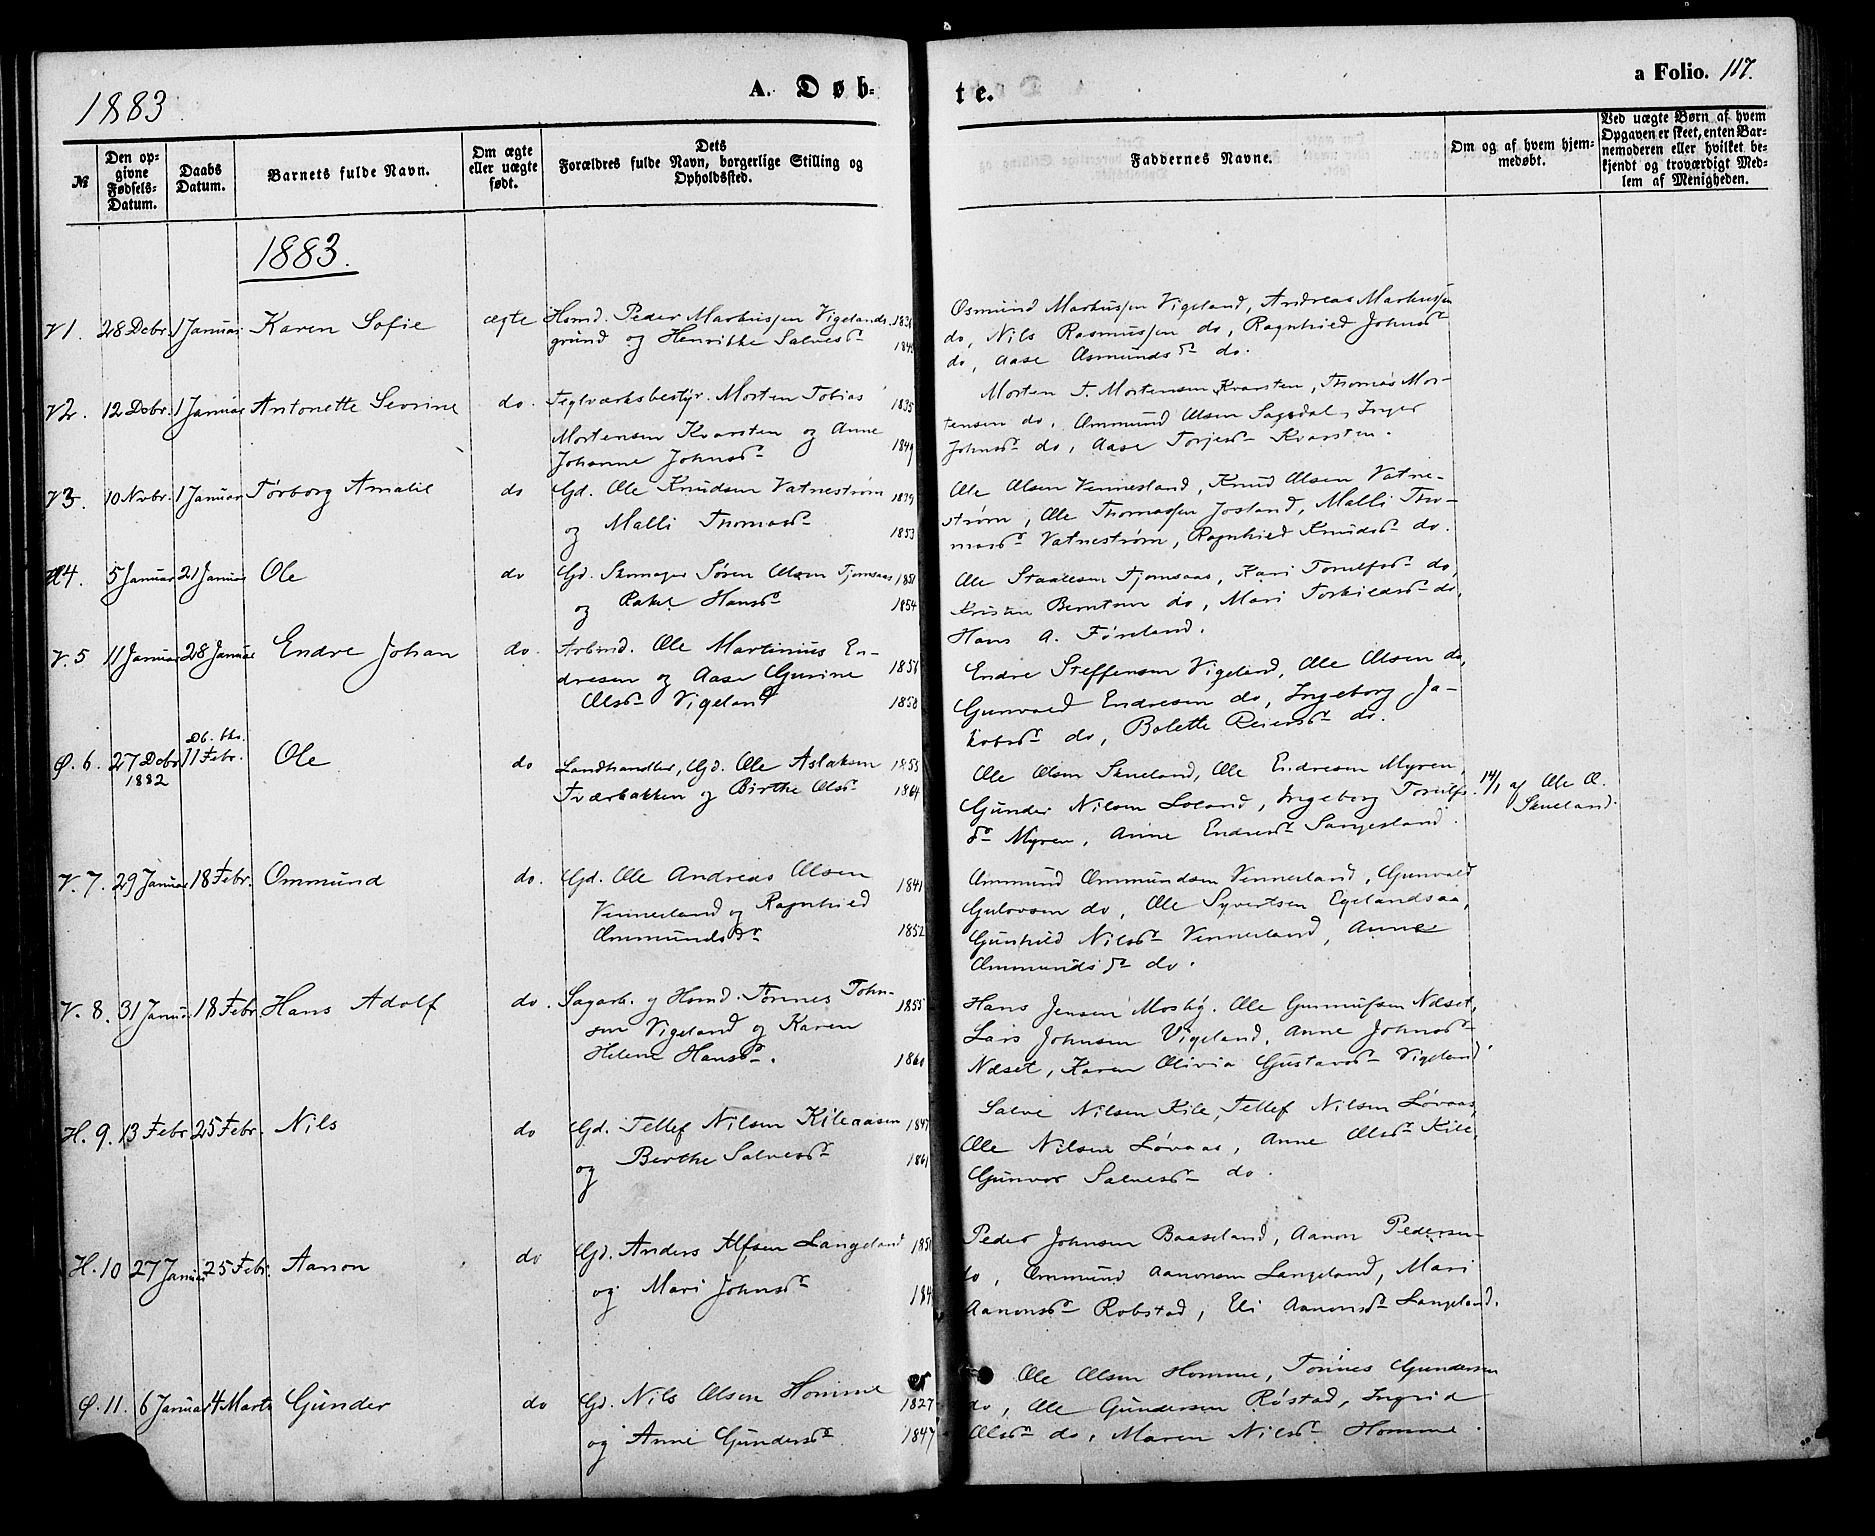 1883
A. Døb-
te.
a Folio. 117.
№
Den op-
givne
Fødsels-
Datum.
Daabs
Datum.
Barnets fulde Navn.
Om ægte
eller uægte
født.
Dets
Forældres fulde Navn, borgerlige Stilling og
Opholdssted.
Faddernes Navne.
Om og af hvem hjem-
medøbt.
Ved uægte Børn af hvem
Opgaven er skeet, enten Bar-
nemoderen eller hvilket be-
kjendt og troværdigt Med-
lem af Menigheden.
1883.
V1. 28 Debr. 1 Januar Karen Sofie ægte Hsmd. Peder Markussen Vigelands- 1836
grund og Henrikke Salvesdr
Osmund Markussen Vigeland, Andreas Markussen
do, Nils Rasmussen do, Ragnhild Johnsdr
do, Aase Osmundsdr do.
V2. 12 Debr. 1 Januar Antonette Severine do. Teglværksbestyr. Morten Tobias 1835
Mortensen Kvarsten og Anne 1849
Johanne Johnsdr
Morten T. Mortensen Kvarsten, Thomas Mor-
tensen do, Ommund Olsen Sagedal, Inger
Johnsdr do, Aase Torjesdr Kvarsten.
V3. 10 Nvbr. 1 Januar Torborg Amalie do Gd. Ole Knudsen Vatnestrøm 1839
og Malli Thomasdr 1853
Ole Olsen Vennesland, Knud Olsen Vatne-
strøm, Ole Thomassen Josland, Malli Tho-
masdr Vatnestrøm, Ragnhild Knudsdr do.
Ø4. 5 Januar 21 Januar Ole do Gd. Skomager Søren Olsen Tjomsaas 1851
og Rakel Hansdr 1854
Ole Staalesen Tjomsaas, Kari Torulfsdr do,
Kristen Berntsen do, Mari Torkildsdr do,
Hans A. Føreland.
V. 5 11 Januar 28 Januar Endre Johan do. Arbmd. Ole Martinius En-
dresen og Aase Gurine 1851
Olsdr Vigeland 1858
Endre Steffensen Vigeland, Ole Olsen do,
Gunvald Endresen do, Ingeborg Ja-
kobsdr do, Bolette Reiersdr do.
Ø. 6. 27 Debr. 11 Febr. Ole do Landhandler, Gd. Ole Aslaksen 1855
1882
Tværbakken og Birthe Olsdr 1864
Ole Olsen Skueland, Ole Endresen Myren,
Gunder Nilsen Loland, Ingeborg Torulfs-
dr Myren, Anne Endresdr Sangesland.
14/1 af Ole O.
Skueland.
V. 7. 29 Januar 18 Febr. Ommund do. Gd. Ole Andreas Olsen 1841
Vennesland og Ragnhild
Ommundsdr 1852
Ommund Ommundsen Vennesland, Gunvald
Gulovsen do, Ole Syvertsen Egelandsaa,
Gunhild Nilsdr Vennesland, Anne
Ommundsdr do.
V. 8. 31 Januar 18 Febr. Hans Adolf do. Sagarb. og Hsmd. Tønnes John- 1855
sen Vigeland og Karen
Helene Hansdr. 1860
Hans Jensen Mosby, Ole Gunnufsen Næset,
Lars Johnsen Vigeland, Anne Johnsdr
Næset, Karen Olivia Gustavsdr Vigeland
H. 9. 13 Febr. 25 Febr. Nils do Gd. Tellef Nilsen Kileaasen 1847
og Berthe Salvesdr 1861
Salve Nilsen Kile, Tellef Nilsen Løvaas,
Ole Nilsen Løvaas, Anne Olsdr Kile,
Gunvor Salvesdr do.
H. 10 27 Januar 25 Febr. Aanon do Gd. Anders Alfsen Langeland
og Mari Johnsdr
Peder Johnsen Baaseland, Aanon Pedersen
do, Ommund Aanonsen Langeland, Mari
Aanonsdr Robstad, Eli Aanonsdr Langeland.
Ø. 11. 6 Januar 4 Marts Gunder do Gd. Nils Olsen Homme 1827
og Anne Gundersdr 1847
Ole Olsen Homme, Tønnes Gundersen
do, Ole Gundersen Røstad, Ingrid
Olsdr do, Maren Nilsdr Homme.